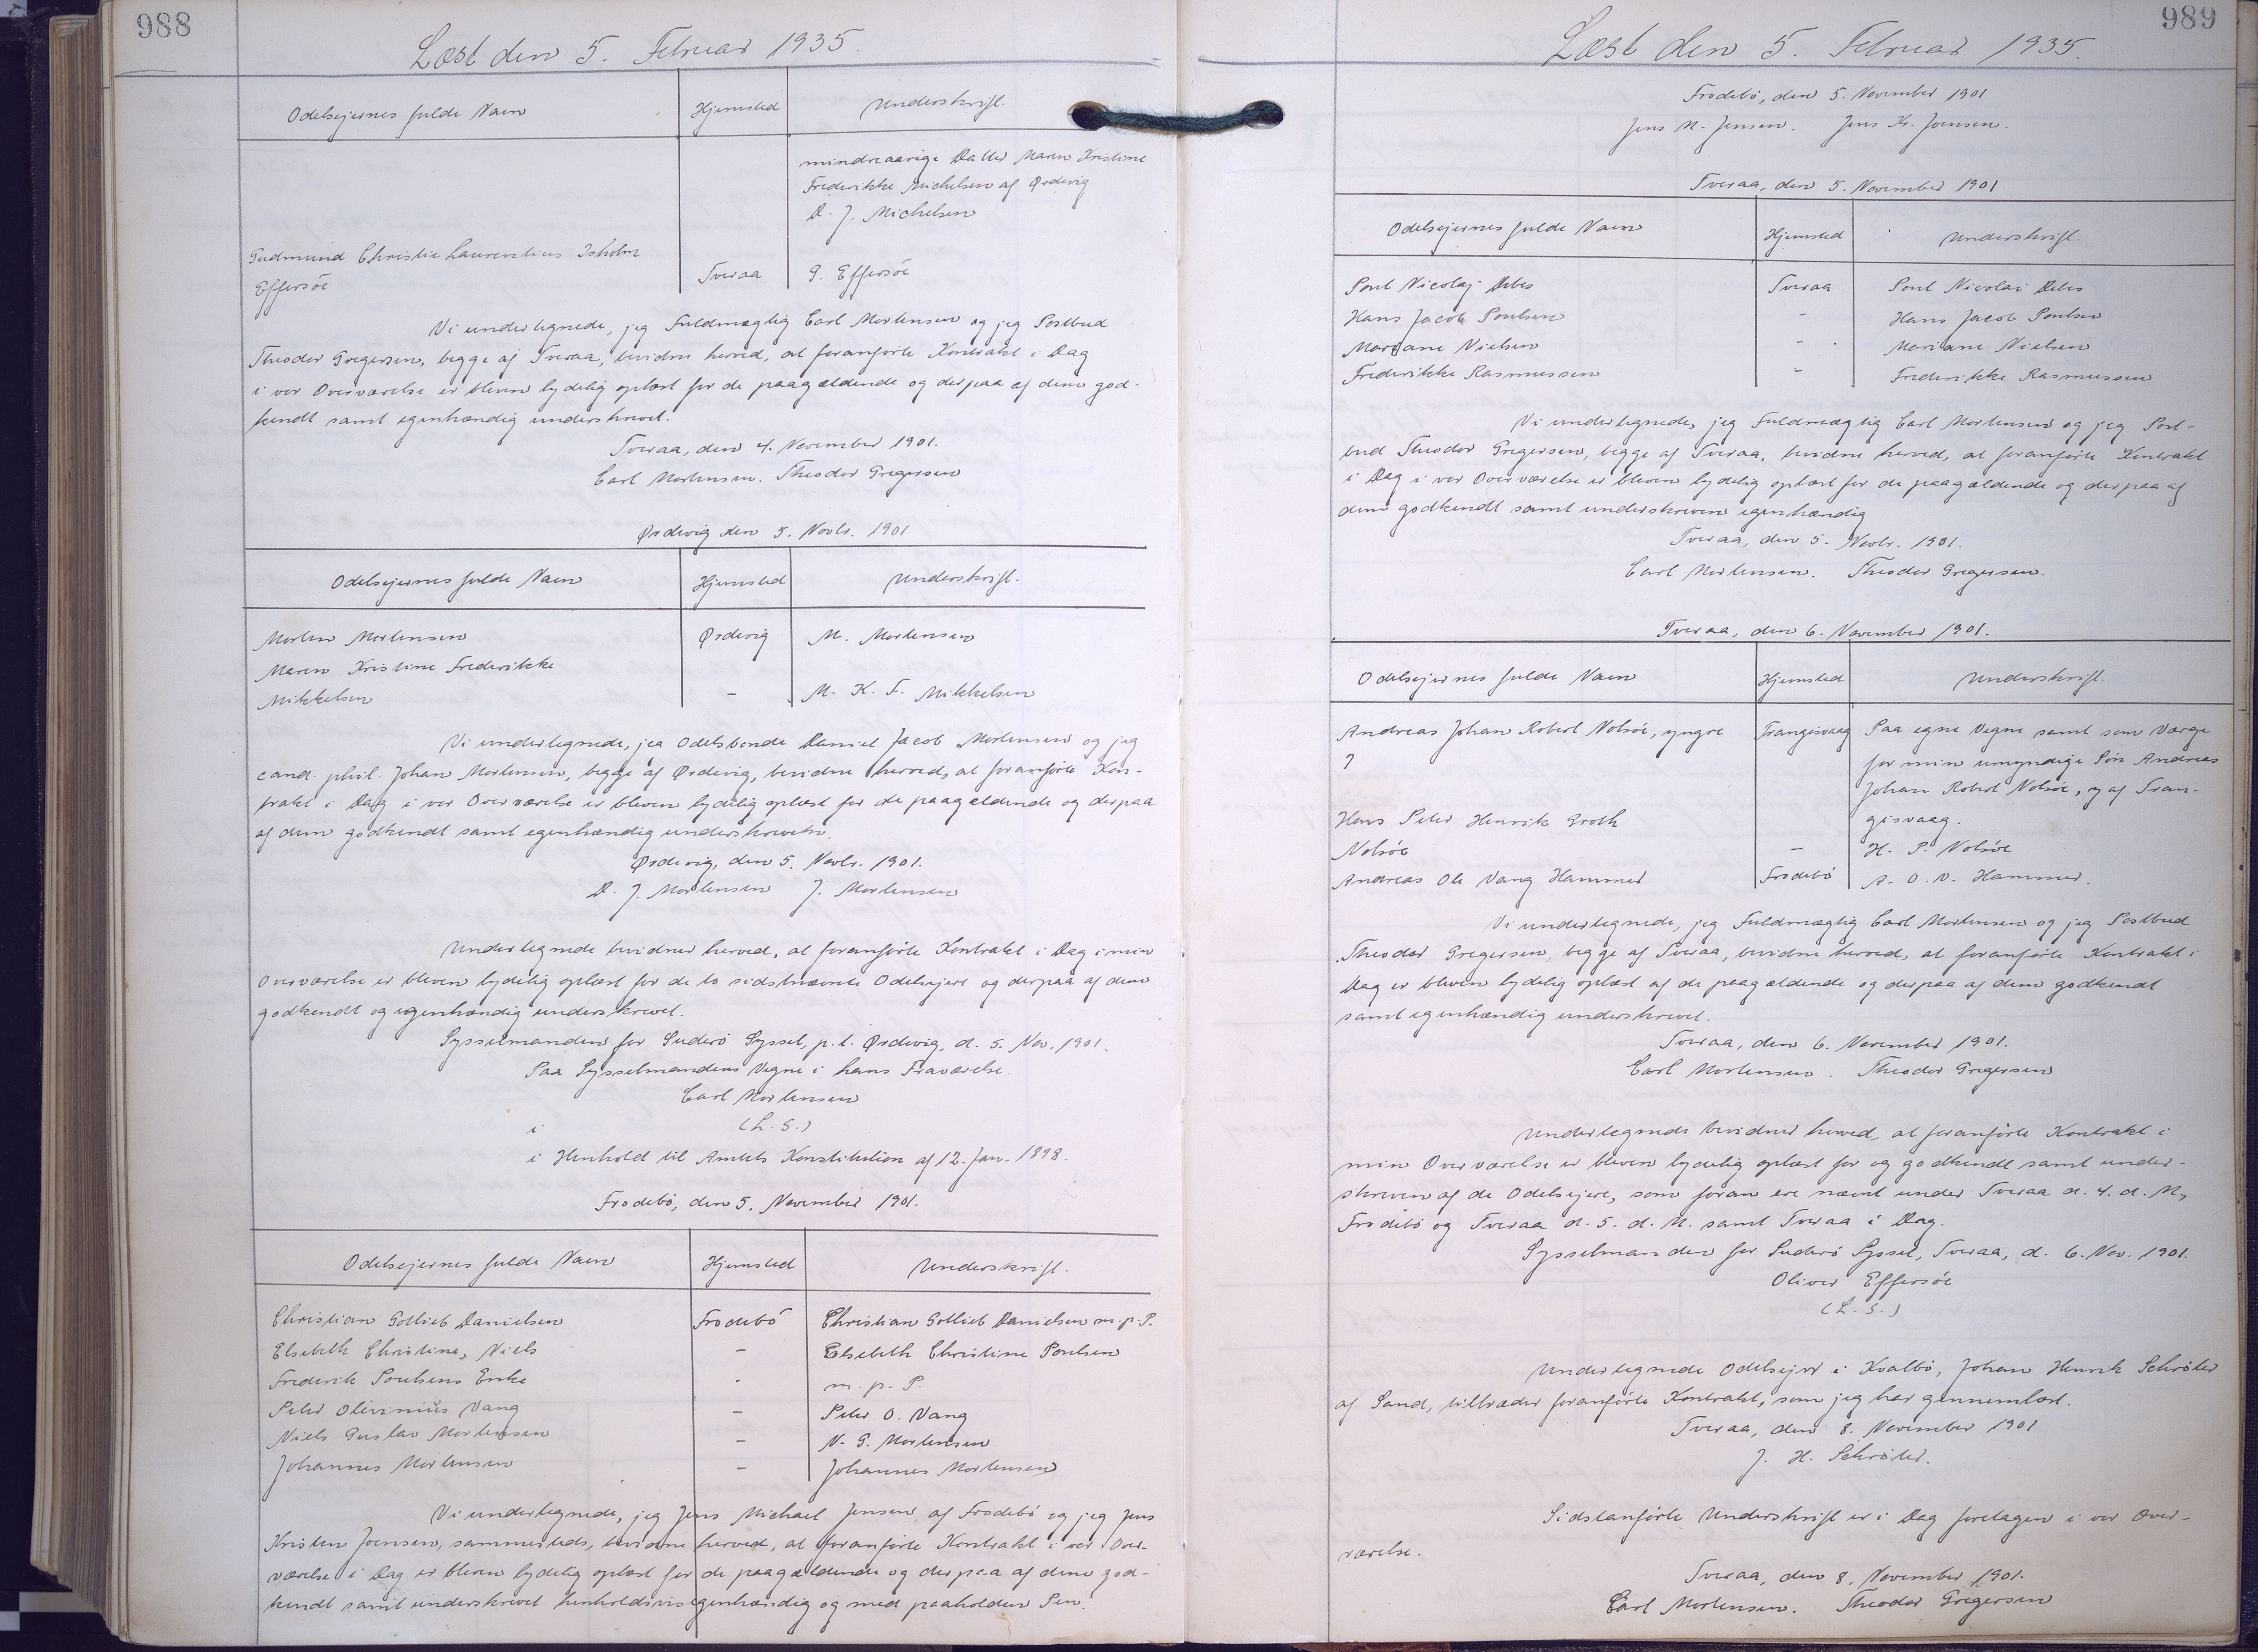 988
Læst den 5. Februar 1935.
Odelsejernes fulde Navn Hjemsted Underskrift.
mindreaarige Datter Maren Kristine
Frederikke Michelsen af Ørdevig
D. J. Michelsen
Gudmund Christie Laurentius Isholm
Effersöe Tveraa G. Effersöe
Vi undertegnede, jeg Fuldmægtig Carl Mortensen og jeg Postbud
Theodor Gregersen, begge af Tveraa, bevidne herved, at foranförte Kontrakt i Dag
i vor Overværelse er bleven lydelig oplæst for de paagældende og derpaa af dem god-
kendt samt egenhændig underskrevet.
Tveraa, den 4. November 1901.
Carl Mortensen. Theodor Gregersen
Ørdevig den 5. Novbr. 1901
Odelsejernes fulde Navn Hjemsted Underskrift.
Morten Mortensen Ørdevig M. Mortensen
Maren Kristine Frederikke
Mikkelsen - M. K. F. Mikkelsen
Vi undertegnede, jeg Odelsbonde Daniel Jacob Mortensen og jeg
cand. phil. Johan Mortensen, begge af Ørdevig, bevidne herved, at foranförte Kon-
trakt i Dag i vor Overværelse er bleven lydelig oplæst for de paagældende og derpaa
af dem godkendt samt egenhændig underskreven.
Ørdevig, den 5. Novbr. 1901.
D. J. Mortensen J. Mortensen
Undertegnede bevidner herved, at foranförte Kontrakt i Dag i min
Overværelse er bleven lydelig oplæst for de to sidstnævnte Odelsejere og derpaa af dem
godkendt og egenhændig underskrevet.
Sysselmanden for Suderö Syssel, p. t. Ørdevig, d. 5. Nov. 1901.
Paa Sysselmandens Vegne i hans Fraværelse.
Carl Mortensen
i (L. S.)
i Henhold til Amtets Konstitution af 12. Jan. 1898.
Frodebö, den 5. November 1901.
Odelsejernes fulde Navn Hjemsted Underskrift.
Christian Gotlieb Danielsen Frodebö Christian Gotlieb Danielsen m. p. P.
Elsebeth Christine, Niels - Elsebeth Christine Poulsen
Frederik Poulsens Enke - m. p. P.
Peter Olivinius Vang - Peter O. Vang
Niels Gustav Mortensen - N. G. Mortensen
Johannes Mortensen - Johannes Mortensen
Vi undertegnede, jeg Jens Michael Jensen af Frodebö og jeg Jens
Kristen Joensen, sammesteds, bevidne herved, at foranförte Kontrakt i vor Over-
værelse i Dag er bleven lydelig oplæst for de paagældende og derpaa af dem god-
kendt samt underskrevet henholdsvis egenhændig og med paaholden Pen.
989
Læst den 5. Februar 1935.
Frodebö, den 5. November 1901
Jens M. Jensen. Jens Kr. Joensen.
Tveraa, den 5. November 1901
Odelsejernes fulde Navn Hjemsted Underskrift.
Poul Nicolaj Debes Tveraa Poul Nicolai Debes
Hans Jacob Poulsen - Hans Jacob Poulsen
Mariane Nielsen - Mariane Nielsen
Frederikke Rasmussen - Frederikke Rasmussen
Vi undertegnede, jeg Fuldmægtig Carl Mortensen og jeg Post-
bud Theodor Gregersen, begge af Tveraa, bevidne herved, at foranförte Kontrakt
i Dag i vor Overværelse er bleven lydelig oplæst for de paagældende og derpaa af
dem godkendt samt underskreven egenhændig
Tveraa, den 5. Novbr. 1901.
Carl Mortensen. Theodor Gregersen.
Tveraa, den 6. November 1901.
Odelsejernes fulde Navn Hjemsted Underskrift.
Andreas Johan Robert Nolsöe, yngre Trangisvaag Paa egne Vegne samt som Værge
? for min umyndige Sön Andreas
Johan Robert Nolsöe, y af Tran-
Hans Peter Henrik Groth gisvaag.
Nolsöe - H. P. Nolsöe
Andreas Ole Vang Hammer Frodebö A. O. V. Hammer.
Vi undertegnede, jeg Fuldmægtig Carl Mortensen og jeg Postbud
Theodor Gregersen, begge af Tveraa, bevidne herved, at foranförte Kontrakt i
Dag er bleven lydelig oplæst af de paagældende og derpaa af dem godkendt
samt egenhændig underskrevet.
Tveraa, den 6. November 1901.
Carl Mortensen. Theodor Gregersen
Undertegnede bevidner herved, at foranförte Kontrakt i
min Overværelse er bleven lydelig oplæst for og godkendt samt under-
skreven af de Odelsejere, som foran ere nævnt under Tveraa d. 4. d. M.,
Frodebö og Tveraa d. 5. d. M. samt Tveraa i Dag.
Sysselmanden for Suderö Syssel, Tveraa, d. 6. Nov. 1901.
Oliver Effersöe
(L. S.)
Undertegnede Odelsejer i Kvalbö, Johan Henrik Schröter
af Sand, tiltræder foranförte Kontrakt, som jeg har gennemlæst.
Tveraa, den 8. November 1901
J. H. Schröter.
Sidstanförte Underskrift er i Dag foretagen i vor Over-
værelse.
Tveraa, den 8. November 1901.
Carl Mortensen. Theodor Gregersen